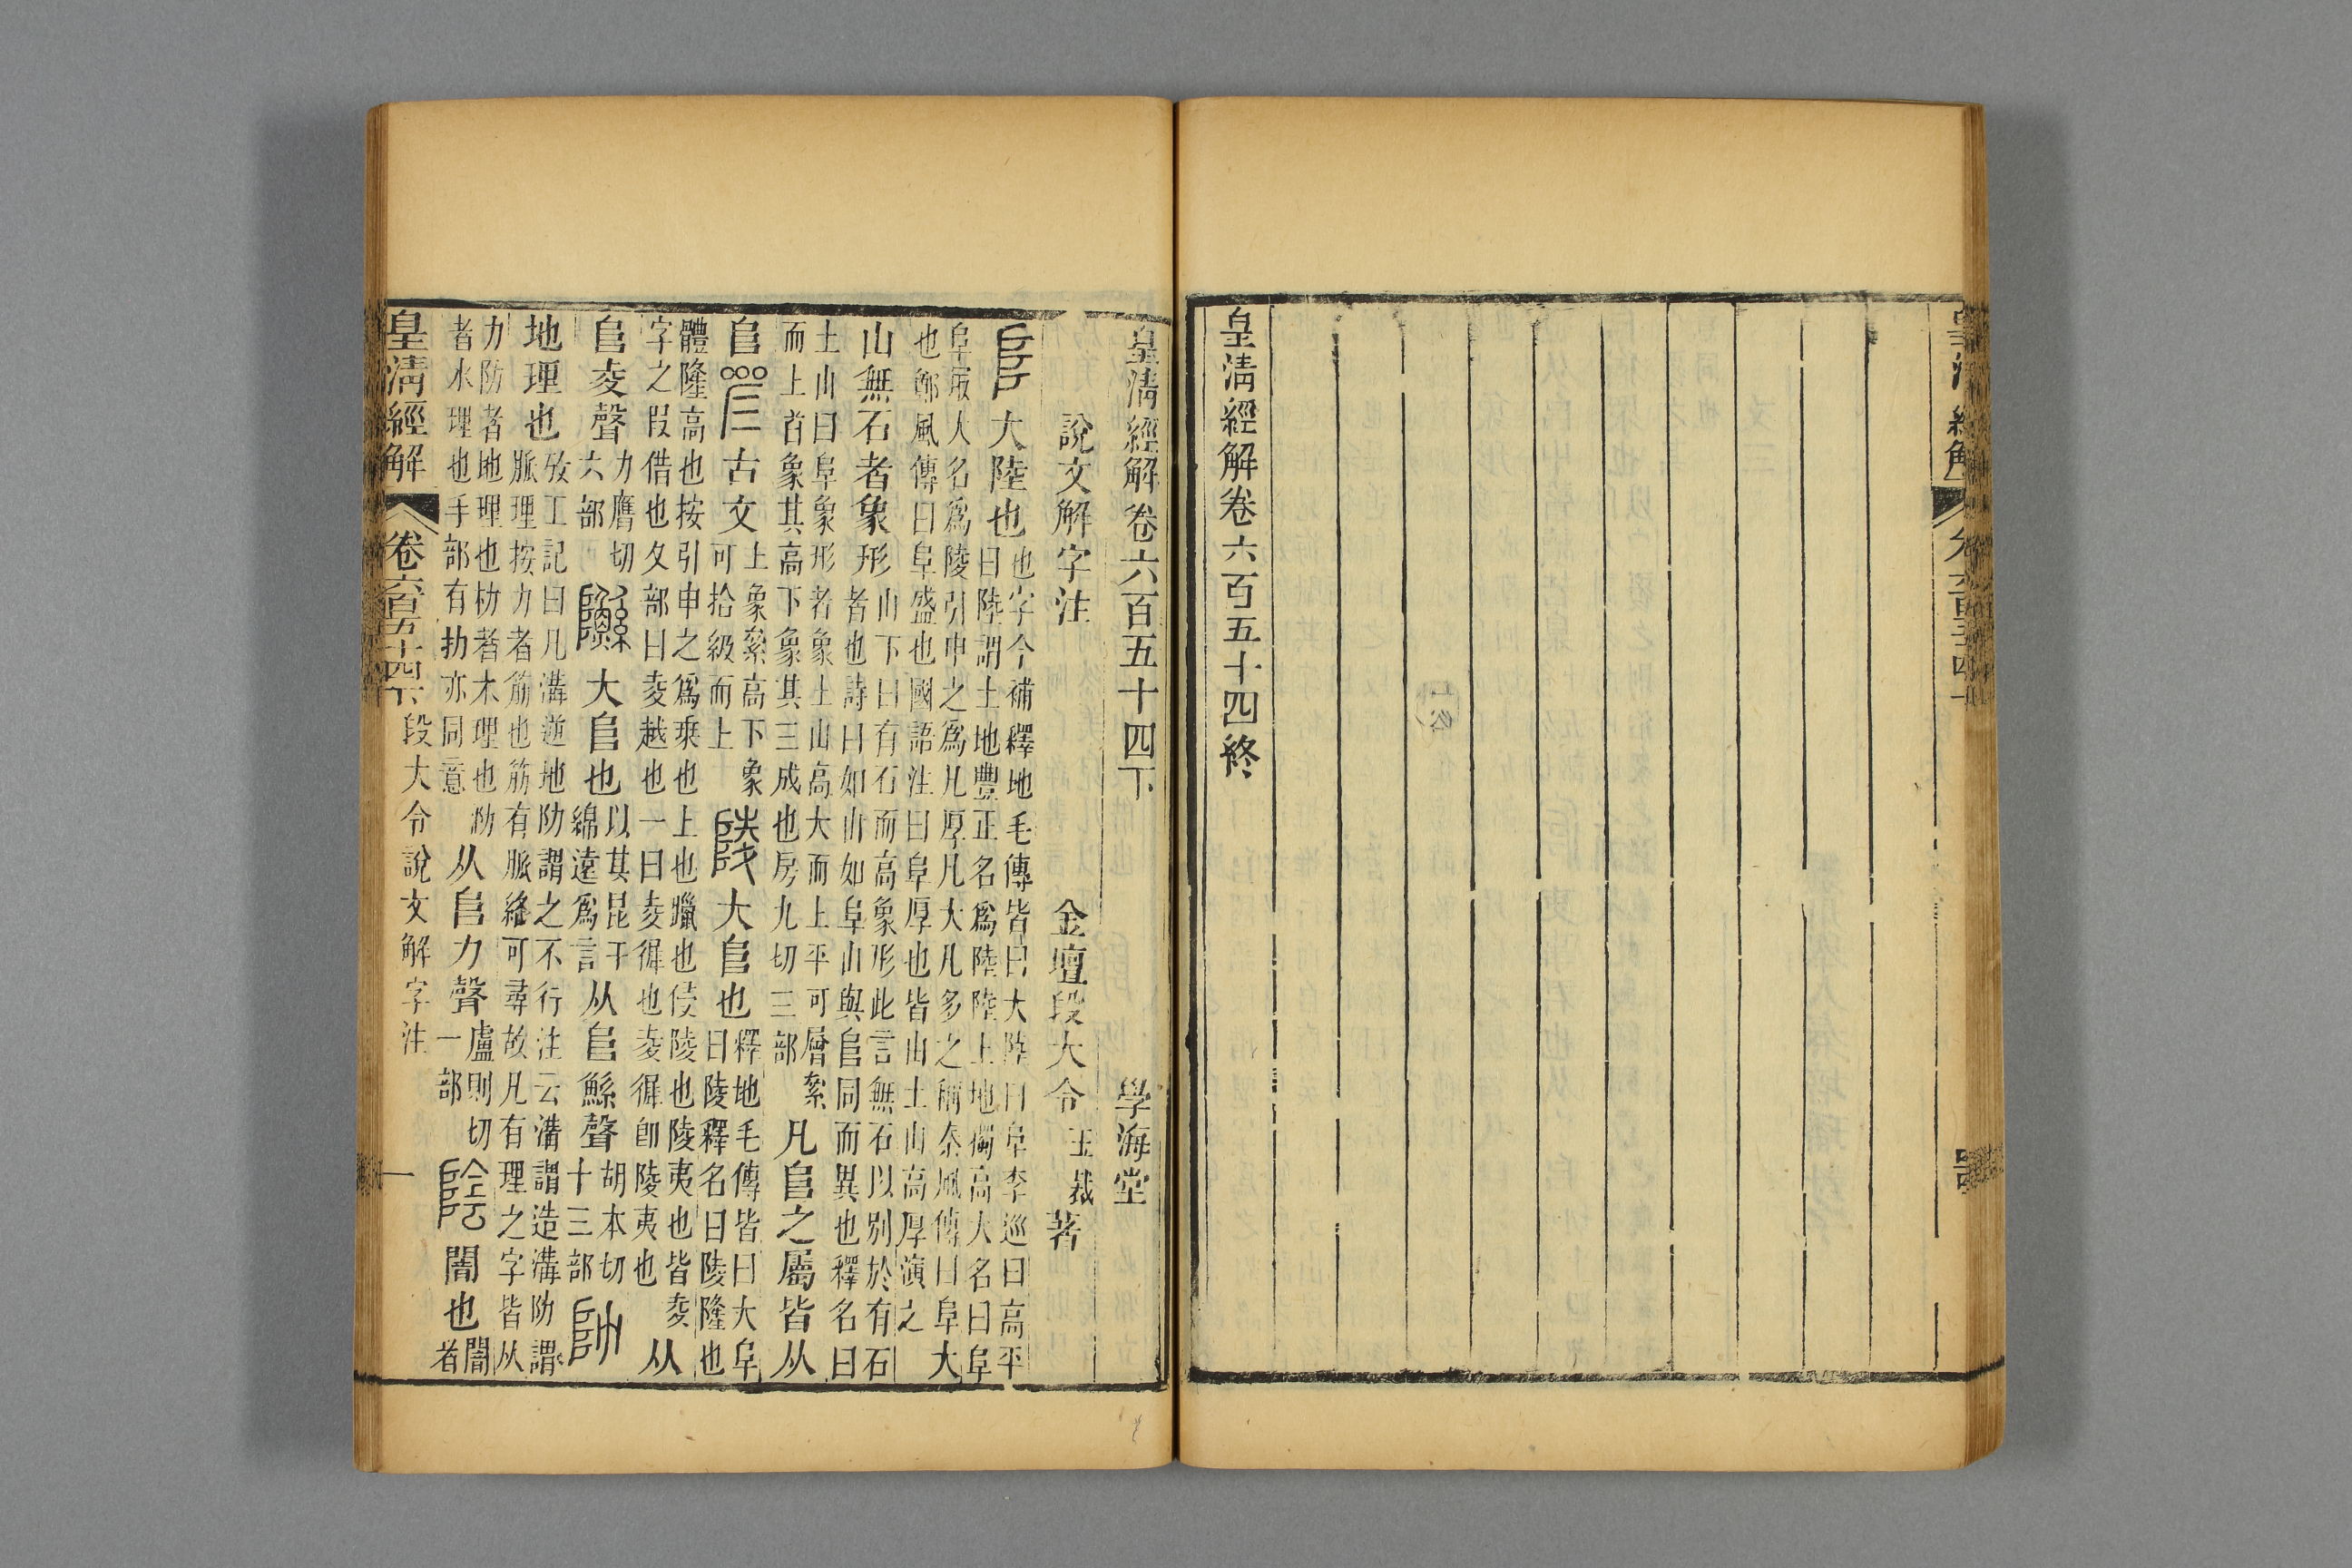 皇清經解卷六百五十四終
皇清經解卷六百五十四下 學海堂
說文解字注 金壇段大令玉裁著
𨸏大陸也
也字今補釋地毛傳皆曰大陸曰阜李巡曰高平
曰陸謂土地豐正名爲陸陸上地獨高大名曰阜
阜最大名爲陵引申之爲凡厚凡大凡多之稱秦風傳曰阜大
也鄭風傳曰阜盛也國語注曰阜厚也皆由土山高厚演之
山無石者象形
山下曰有石而高象形此言無石以別於有石
者也詩曰如山如阜山與𨸏同而異也釋名曰
土山曰阜象形者象土山高大而上平可層絫
而上首象其高下象其三成也房九切三部
凡𨸏之屬皆从
𨸏
古文
上象絫高下象
可拾級而上
陵大𨸏也
釋地毛傳皆曰大阜
曰陵釋名曰陵隆也
體隆高也按引申之爲乗也上也躐也侵陵也陵夷也皆夌
字之叚借也夊部曰夌越也一曰夌徲也夌徲卽陵夷也
从
𨸏夌聲
力膺切
六部
大𨸏也
以其昆干
綿遠爲言
从𨸏鯀聲
胡本切
十三部
阞
地理也
攷工記曰凡溝逆地阞謂之不行注云溝謂造溝阞謂
脈理按力者筋也筋有脈絡可尋故凡有理之字皆从
力防者地理也朸者木理也泐
者水理也手部有扐亦同意
从𨸏力聲
盧則切
一部
陰闇也
闇
者
皇清經解 卷六百五十四下 段大令說文解字注 一